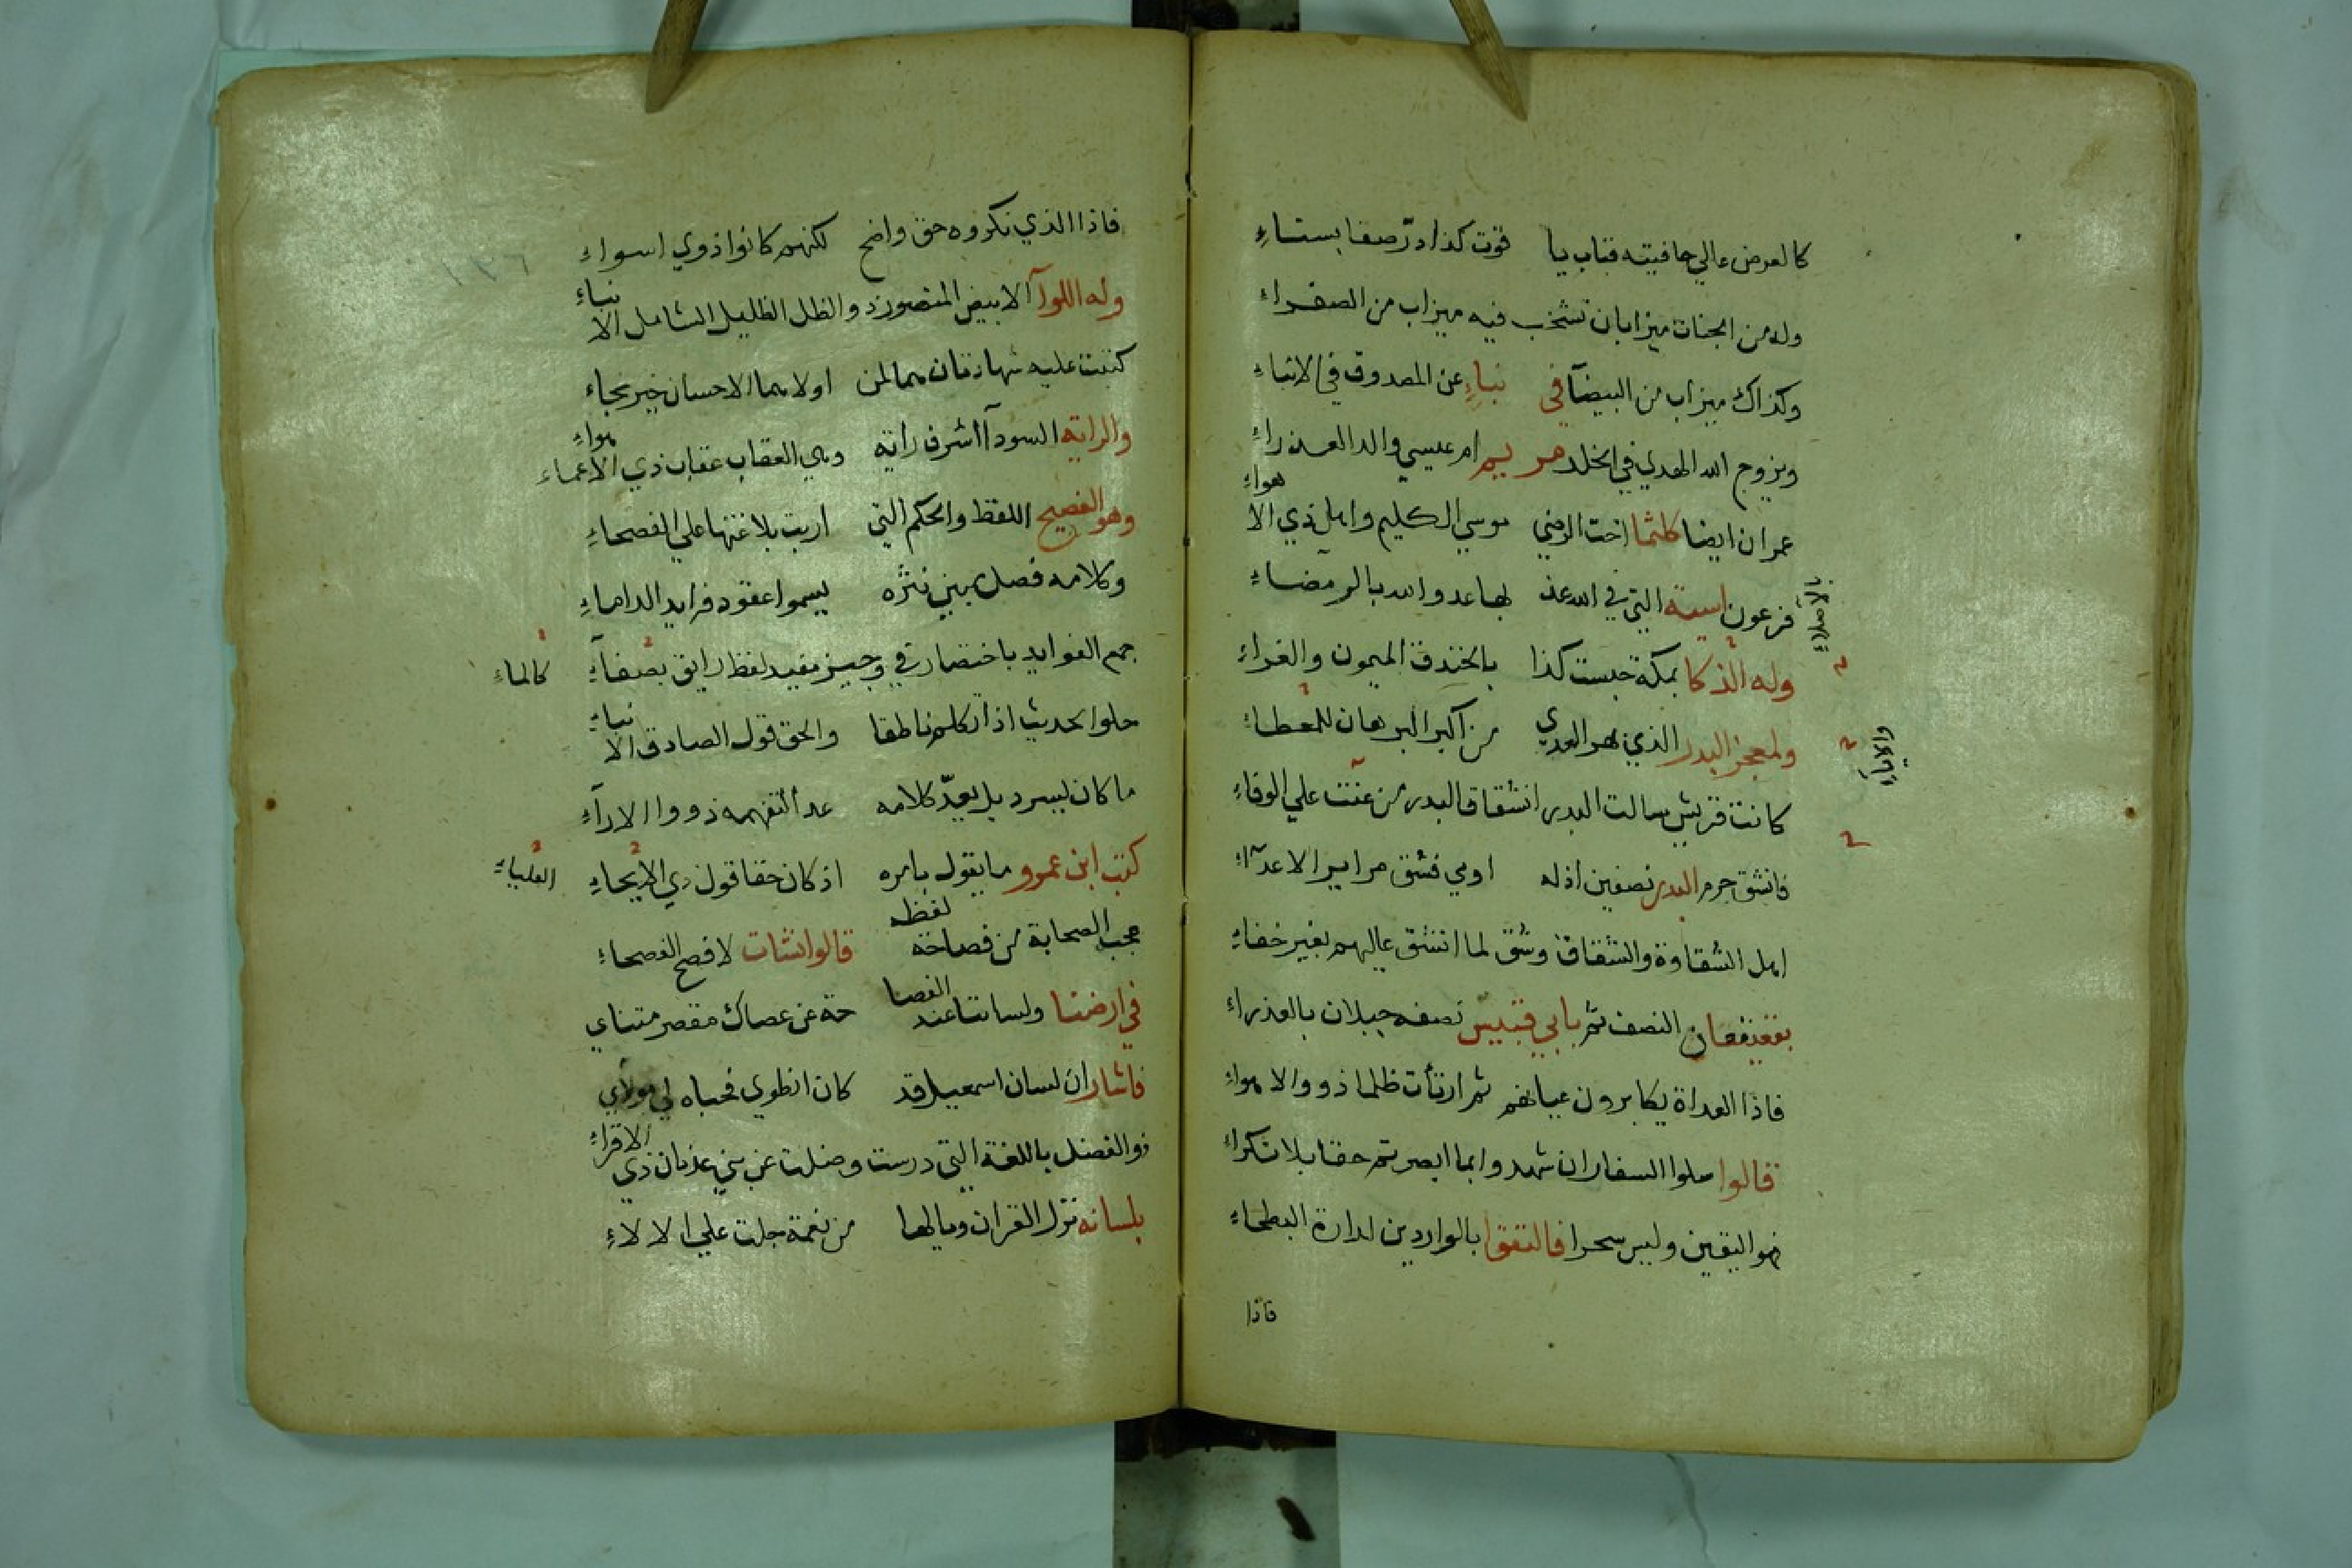 كالعرض عالي حافيته قباب يا قوت كذا درّ صفا بسناءِ
وله من الجنات ميزابان تشخب فيه ميزاب من الصفراءِ
وكذاك ميزاب من البيضآ في نباءِ عن المصدوق في الانباءِ
ويزوج الله الهدي في الخلد مريم ام عيسي والد العذراءِ
عمران ايضا كلثما اخت الرضي موسي الكليم واهل ذي الا هواءِ
فرعون اسية التي في الله عذ بها عدو الله بالرمضاءِ
وله الذكا بمكة حبست كذا بالخندق الميمون والغراءِ
ولمعجز البدر الذي بهر العدي من اكبر البرهان للعظاءِ
كانت قريش سالت البدر انشقاق البدر من عنت علي الوفاءِ
فانشق جرم البدر نصفين اذله اوبي فشق مراير الاعدآءِ
اهل الشقاوة والشقاق وشق لما انشق عاليهم بغير خفاءِ
بقعيقعان النصف ثم بابي قبيس نصفه جبلان بالعذراءِ
فاذا العداة يكابرون عيانهم ثم ارتأت ظلما ذووا الاهواءِ
قالوا سلوا السفاران شهدوا بما ابصرتم حقا بلا نكراءِ
فهو اليقين وليس سحرا فالتقوا بالواردين لدارة البطحاءِ
فاذا
فاذا الذي نكروه حق واضح لكنهم كانوا ذوي اسواءِ
وله اللوآ الابيض المنصور ذو الظل الظليل الشامل الا نباءِ
كتبت عليه شهادتان هما لمن اولاهما الاحسان خير نجاء
والراية السودآ اشرف راية وهي العقاب عقاب ذي الاعماءِ هواءِ
وهو الفصيح اللفظ والحكم التي اربت بلاغتها علي الفصحاءِ
وكلامه فصل بهين نثره يسموا عقود فرايد الداماءِ
جمع الفوايد باختصار في وجيز مفيد لفظ رايق بصفآءِ كالماءِ
حلو الحديث اذا تكلم ناطقا والحق قول الصادق الا نباءِ
ما كان يسرد بل يعدّ كلامه عدا لتفهمه ذووا الارآءِ
كتب ابن عمرو ما يقول بامره اذ كان حقا قول ذي الايحاءِ العلياءِ
عجب الصحابة من فصاحة لفظه قالوا نشات لافصح الفصحاءِ
في ارضنا ولساننا عند الفصا حة عن عصاك مقصر متناي
فاشار ان لسان اسمعيل قد كان انطوي فحباه لي مولاي
ذو الفضل باللغة التي درست وضلت عن بني عدنان ذي الاقراءِ
بلسانه نزل القران ويالها من نعمة جلت علي الالاءِ